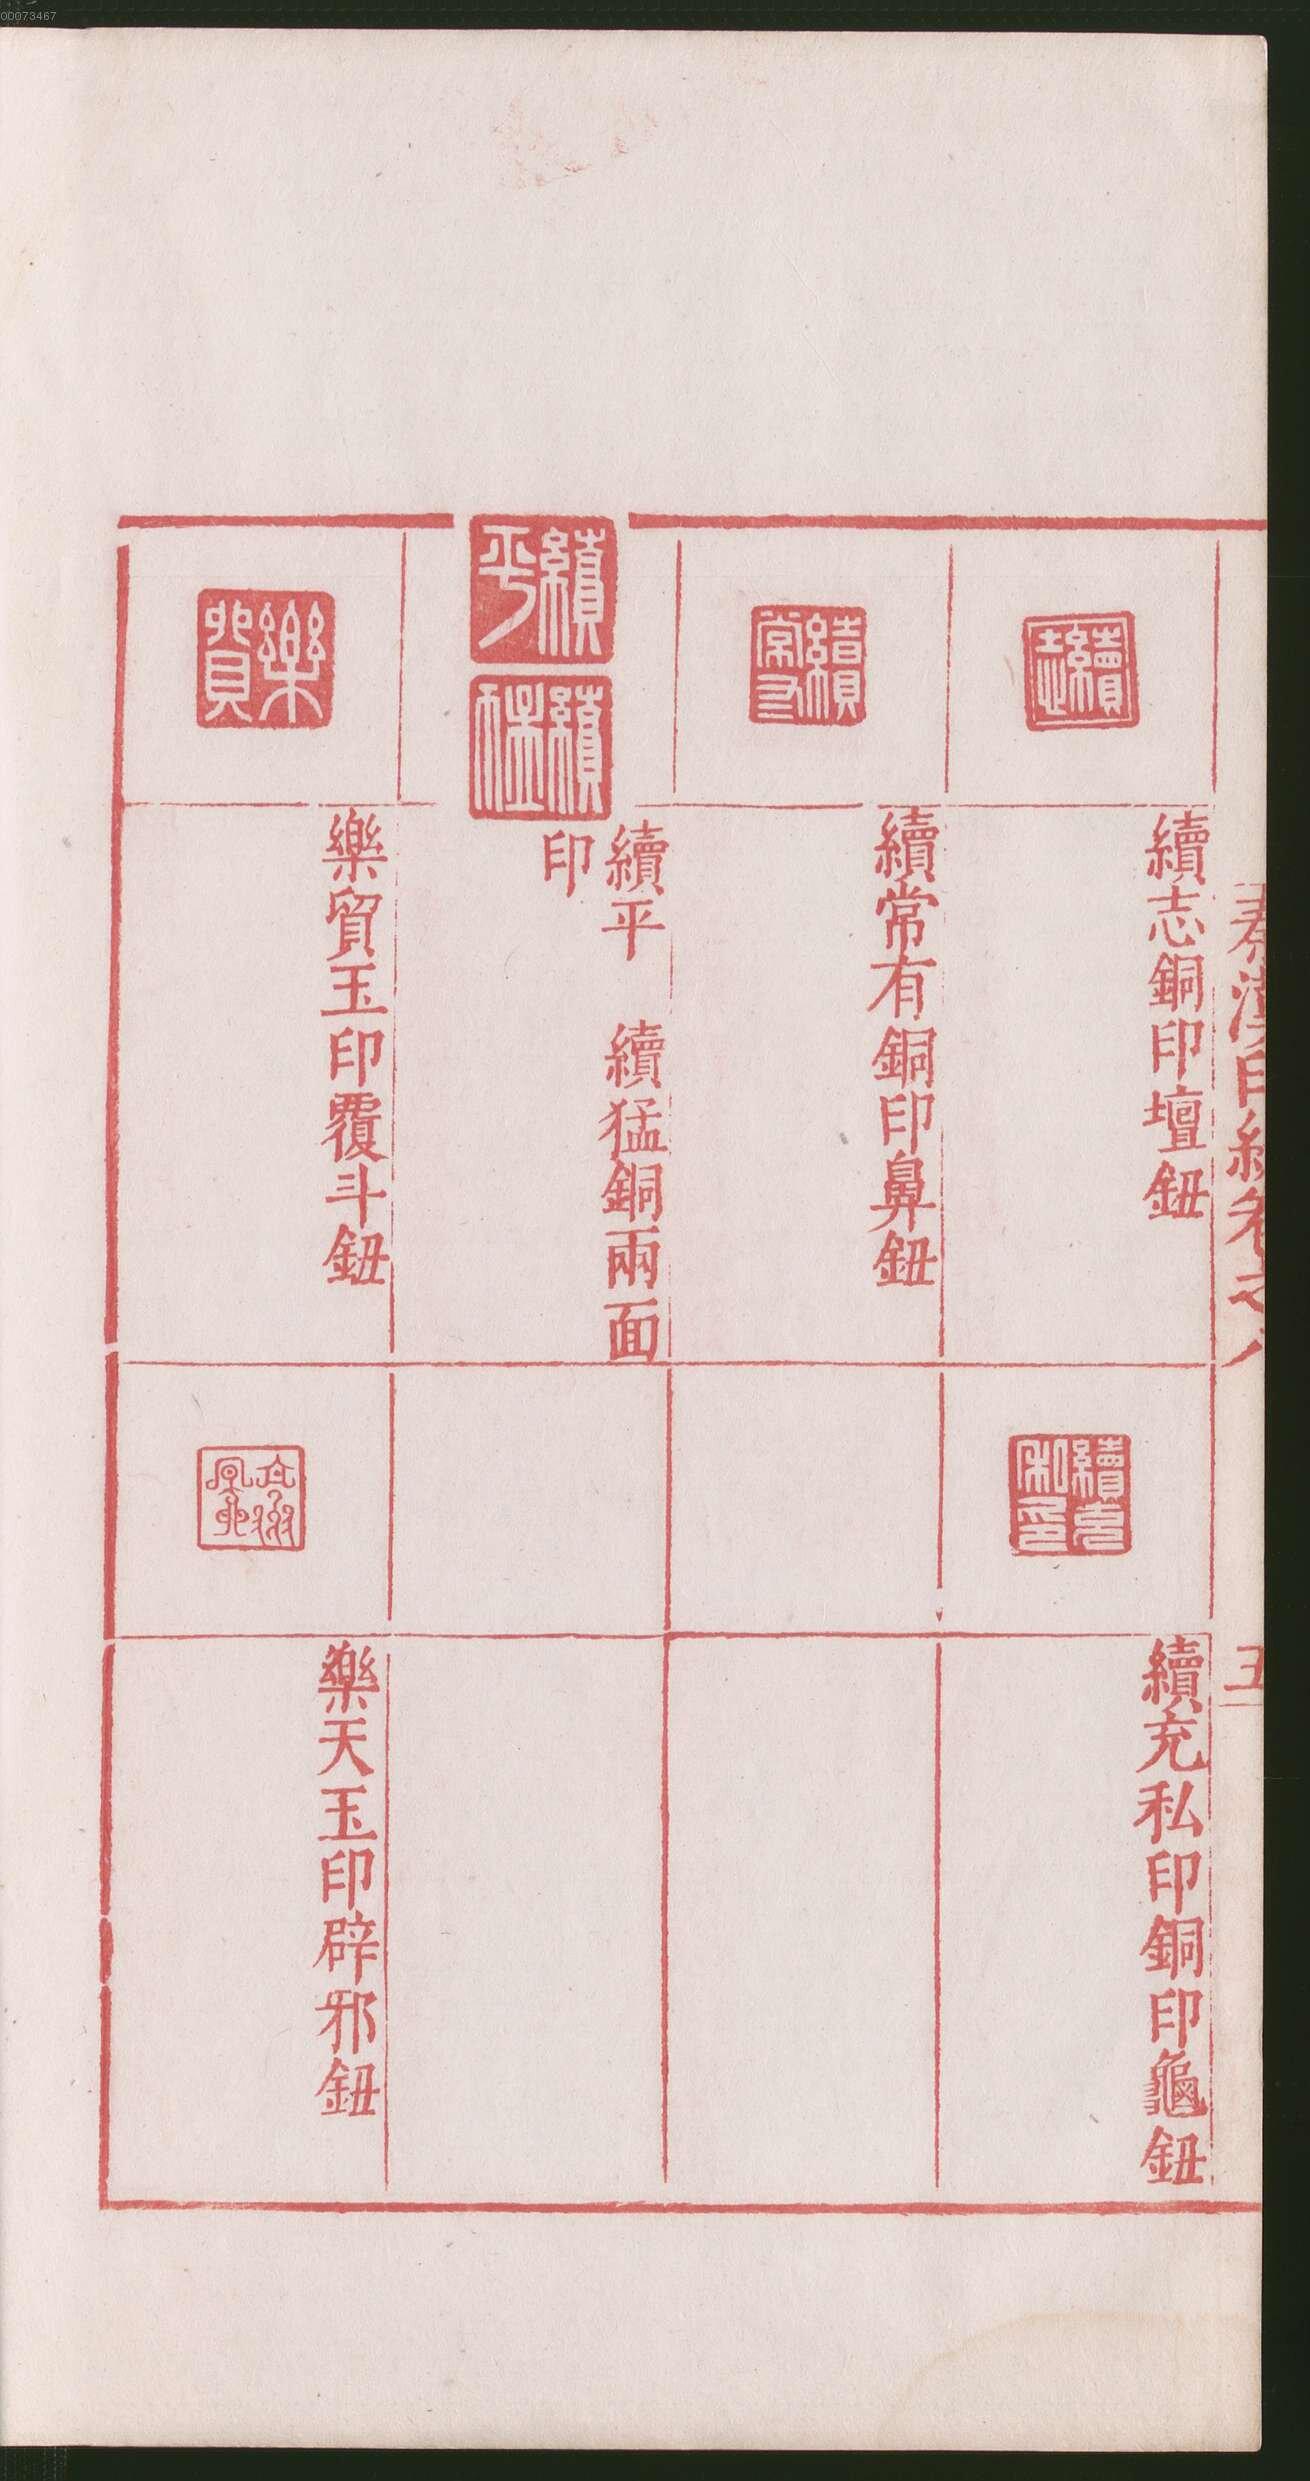 00073467
秦漢印統卷之八
五
續志
續志銅印壇鈕
續充私印
續充私印銅印龜鈕
續常有
續常有銅印鼻鈕
續平
續猛
續平　續猛銅兩面
印
樂貿
樂貿玉印覆斗鈕
樂天玉印辟邪鈕